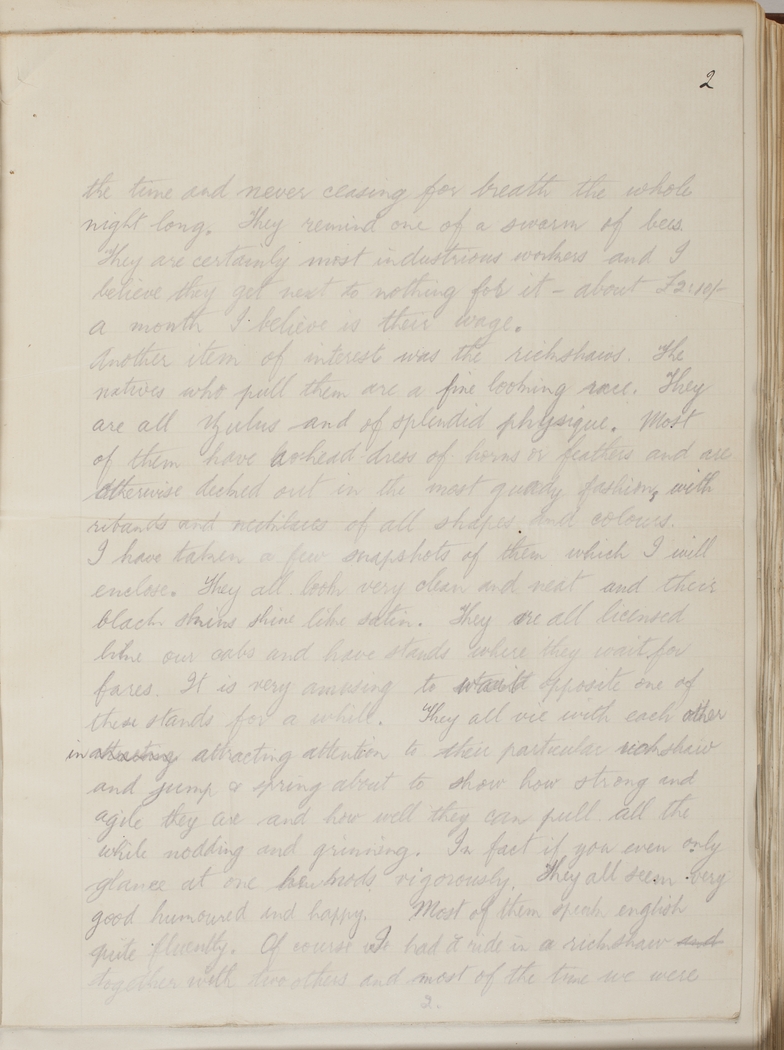 2
the time and never ceasing for breath the whole
night long. They remind one of a swarm of bees
They are certainly most industrious workers and I
believe they get next to nothing for it - about £2:10/-
a month I believe is their wage.
Another item of interest was the richshaws. The
natives who pull them are a fine looking race. They
are all Zulus and of splendid physique. Most
of them have a head dress of horns or feathers and are
otherwise decked out in the most guady fashion, with
ribands and necklaces of all shapes and colours.
I have taken a few snapshots of them which I will
enclose. They all look very clean and neat and their
black skins shine like satin. They are all licensed
like our cabs and have stands where they wait for
fares. It is very amusing to opposite one of
these stands for a while. They all vie with each other
in attracting attracting attention to their particular richshaw
and jump & spring about to show how strong and
agile they are and how well they can pull all the
while nodding and grinning. In fact if you even only
glance at one he nods vigorously. They all seem very
good humoured and happy. Most of them speak english
quite fluently. Of course I had a ride in a richshaw and
together with two others and most of the time we were
2.